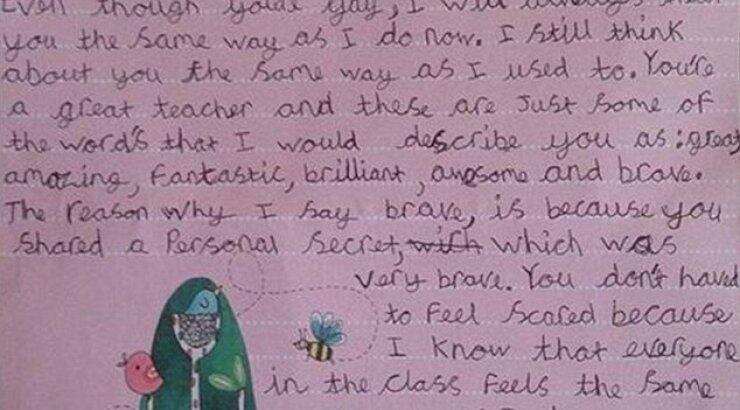 Even though you'r gay, I will always treat
you the same way as I do now. I still think
about you the same way as I used to. You're
a great teacher and these are just some of
the word's that I would describe you as: great
amazing, fantastic, brilliant, awesome and brave.
The reason why I say brave, is because you
shared a Personal secret, with which was
very brave. You don't haved
to feel scared because
I know that everyone
in the class feels the same